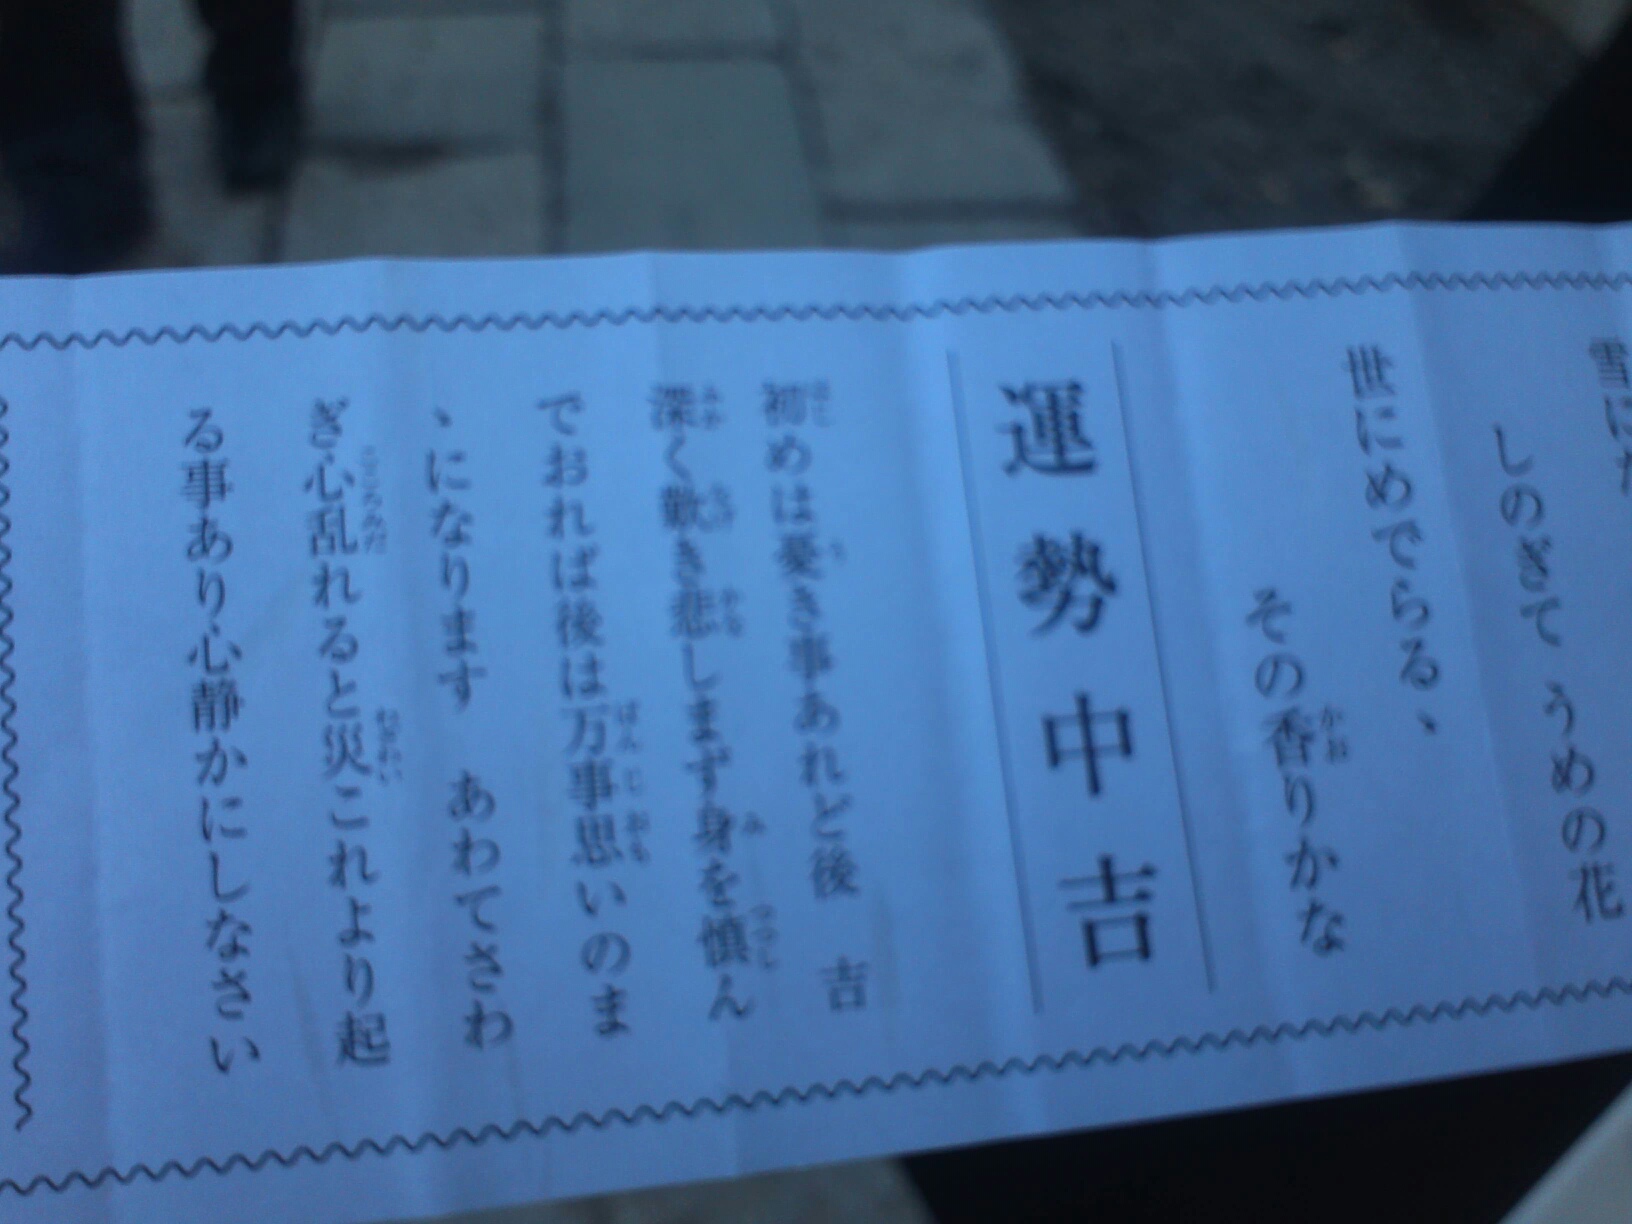 雪にた
しのぎて うめの花
世にめでらる、
その香りかな
運勢中吉
初めは憂き事あれど後 吉
深く歎き悲しまず身を慎ん
でおれば後は万事思いのま
、になります あわてさわ
ぎ心乱れると災これより起
る事あり心静かにしなさい